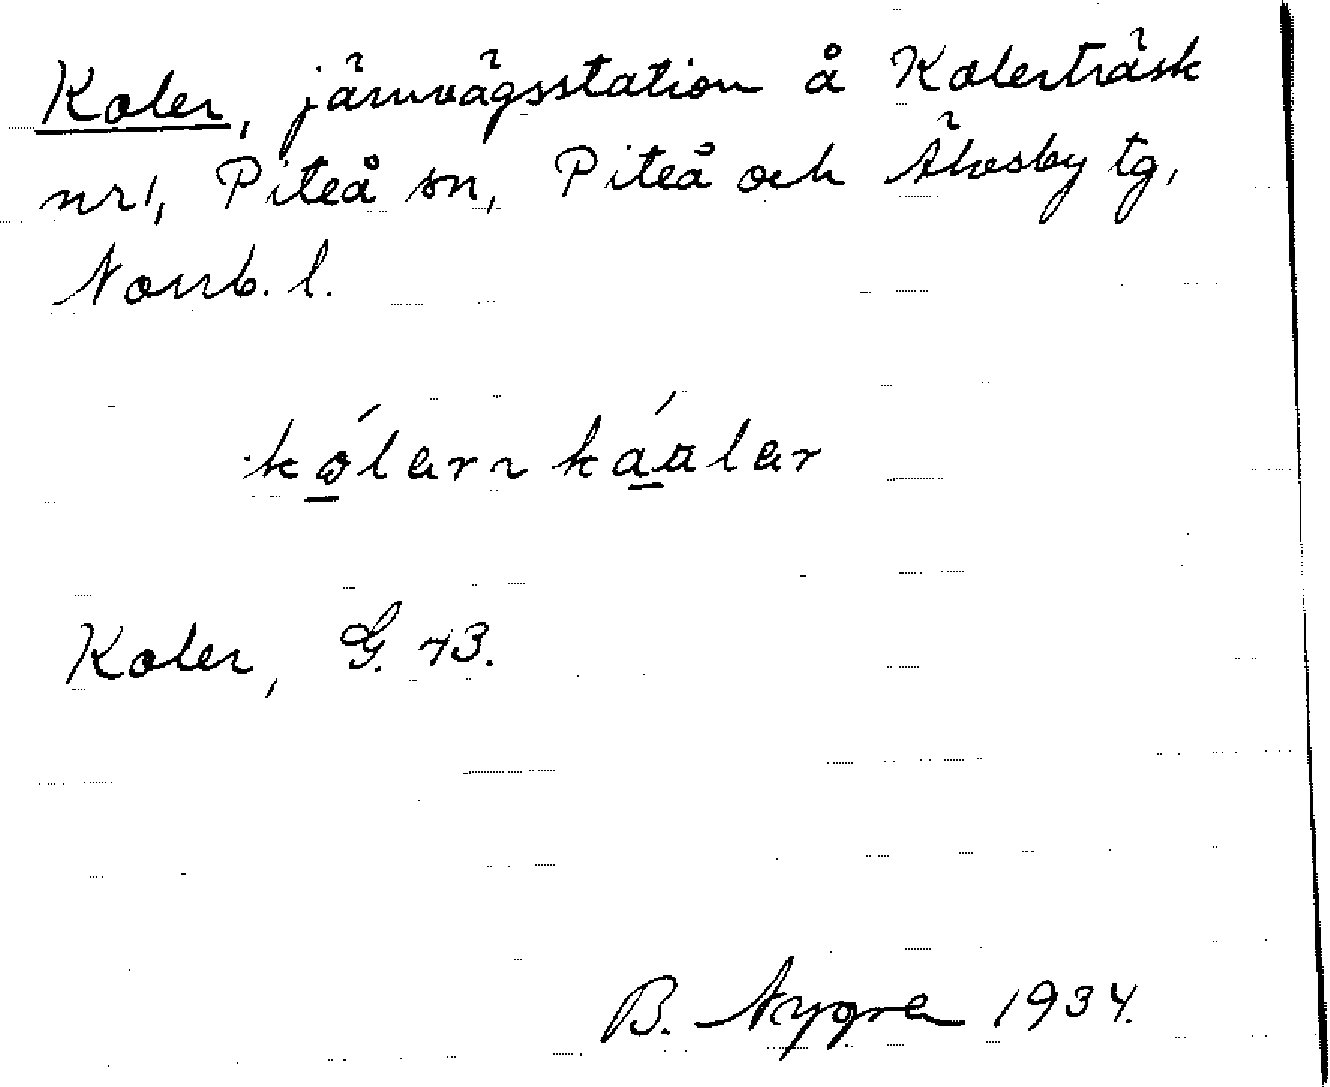 Koler, järnvägsstation å Kolerträsk
nr 1, Piteå sn, Piteå och Älvsby tg,
Norrb. l.
kólar ~ káular
Koler, G. 43.
B. Nygren 1934.